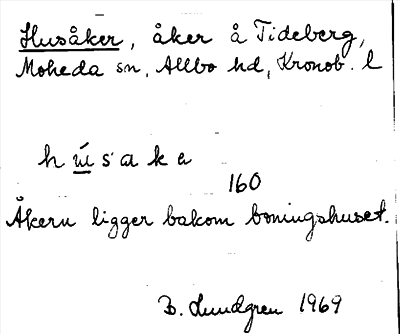 Husåker, åker å Tideberg,
Moheda sn, Allbo hd, Kronob. l
húsake
160
Åkern ligger bakom boningshuset.
B. Lundgren 1969